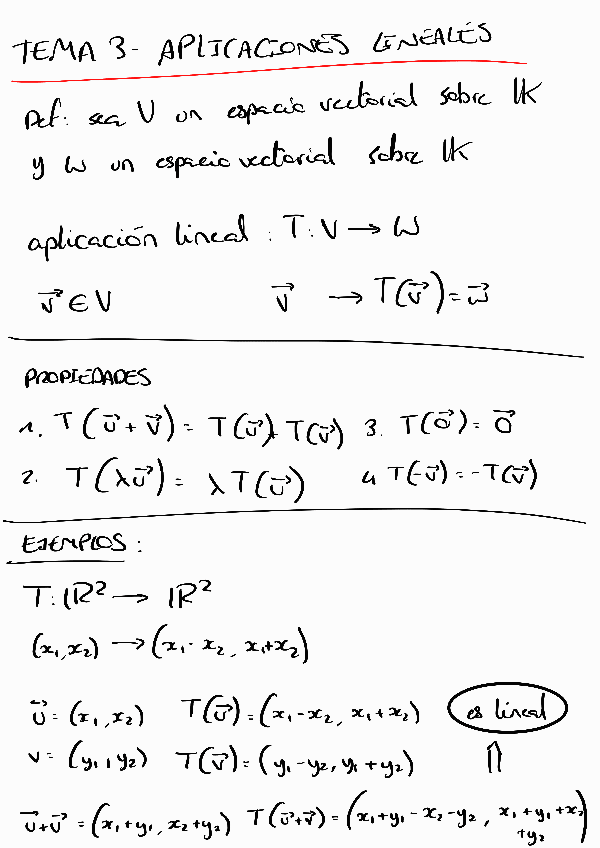 TEMA 3- APLICACIONES LINEALES
Def: sea V un espacio vectorial sobre IK
y W un espacio vectorial sobre IK
aplicación lineal : T: V → W
v⃗ ∈ V v⃗ → T(v⃗) = w⃗
PROPIEDADES
1. T(u⃗ + v⃗) = T(u⃗) + T(v⃗) 3. T(0⃗) = 0⃗
2. T(λu⃗) = λ T(u⃗) 4. T(-v⃗) = -T(v⃗)
EJEMPLOS :
T: IR² → IR²
(x₁, x₂) → (x₁ - x₂, x₁+x₂)
u⃗ = (x₁, x₂) T(u⃗) = (x₁-x₂, x₁+x₂) es lineal
v = (y₁, y₂) T(v⃗) = (y₁-y₂, y₁+y₂) ⇑
u⃗+v⃗ = (x₁+y₁, x₂+y₂) T(u⃗+v⃗) = (x₁+y₁-x₂-y₂, x₁+y₁+x₂
+y₂)